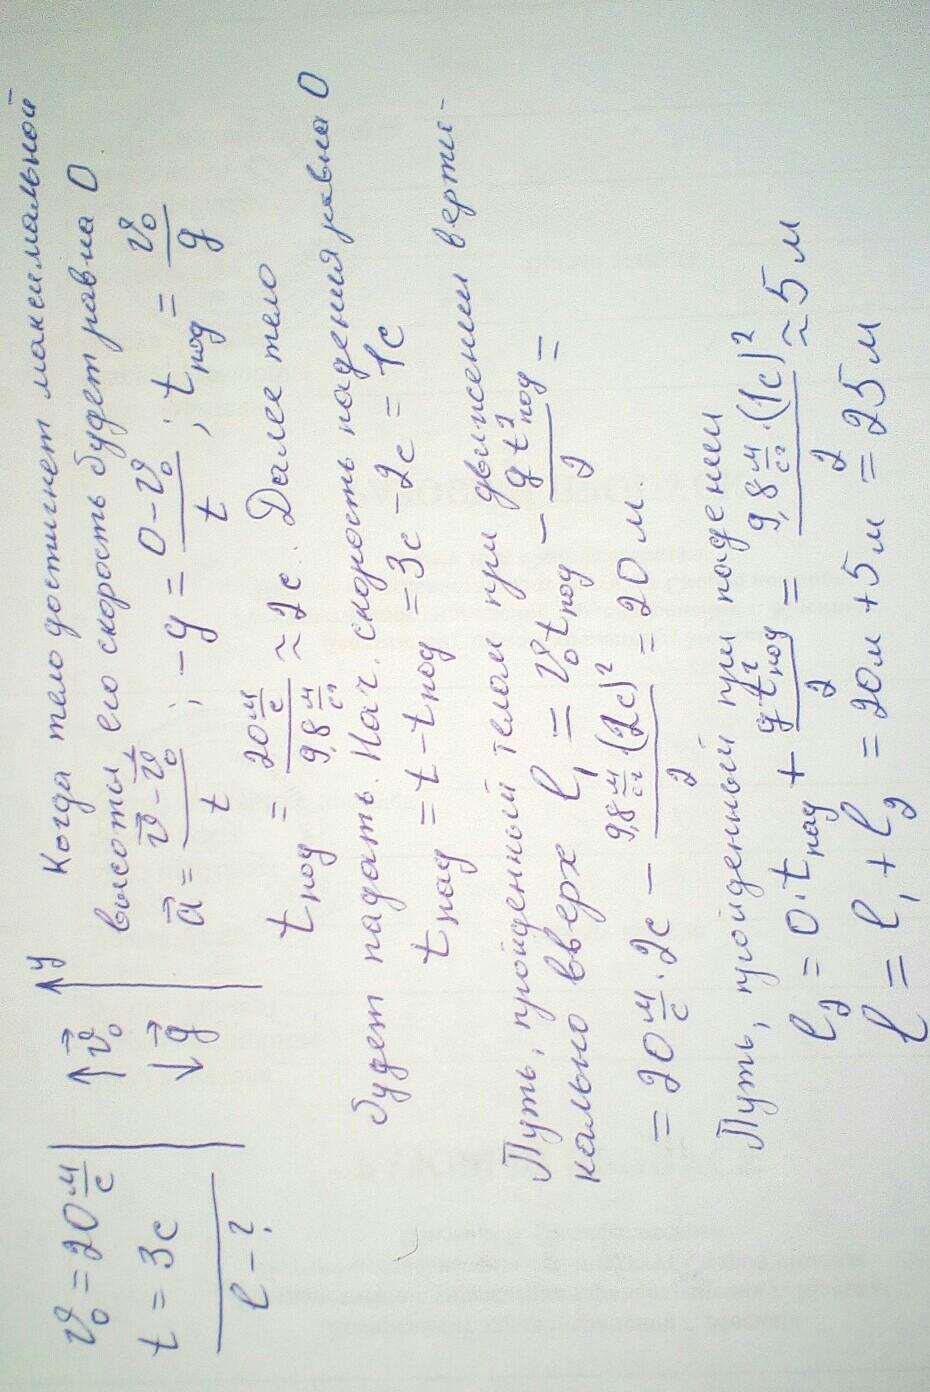 v₀ = 20 м/с
t = 3с
l – ?
↑ v⃗₀
↓ g⃗
↑ y
Когда тело достигнет максимальной
высоты его скорость будет равна 0
a⃗ = (v⃗ – v⃗₀)/t ; –g = (0 – v₀)/t ; tпод = v₀/g
tпод = (20 м/с)/(9,8 м/с²) ≈ 2с. Далее тело
будет падать. Нач. скорость падения равна 0
tпад = t – tпод = 3с – 2с = 1с
Путь, пройденный телом при движении верти-
кально вверх l₁ = v₀tпод – gt²под/2 =
= 20 м/с · 2с – (9,8 м/с² · (2с)²)/2 = 20 м.
Путь, пройденный при падении
l₂ = 0 · tпад + gt²под/2 = (9,8 м/с² · (1с)²)/2 ≈ 5 м
l = l₁ + l₂ = 20м + 5м = 25 м